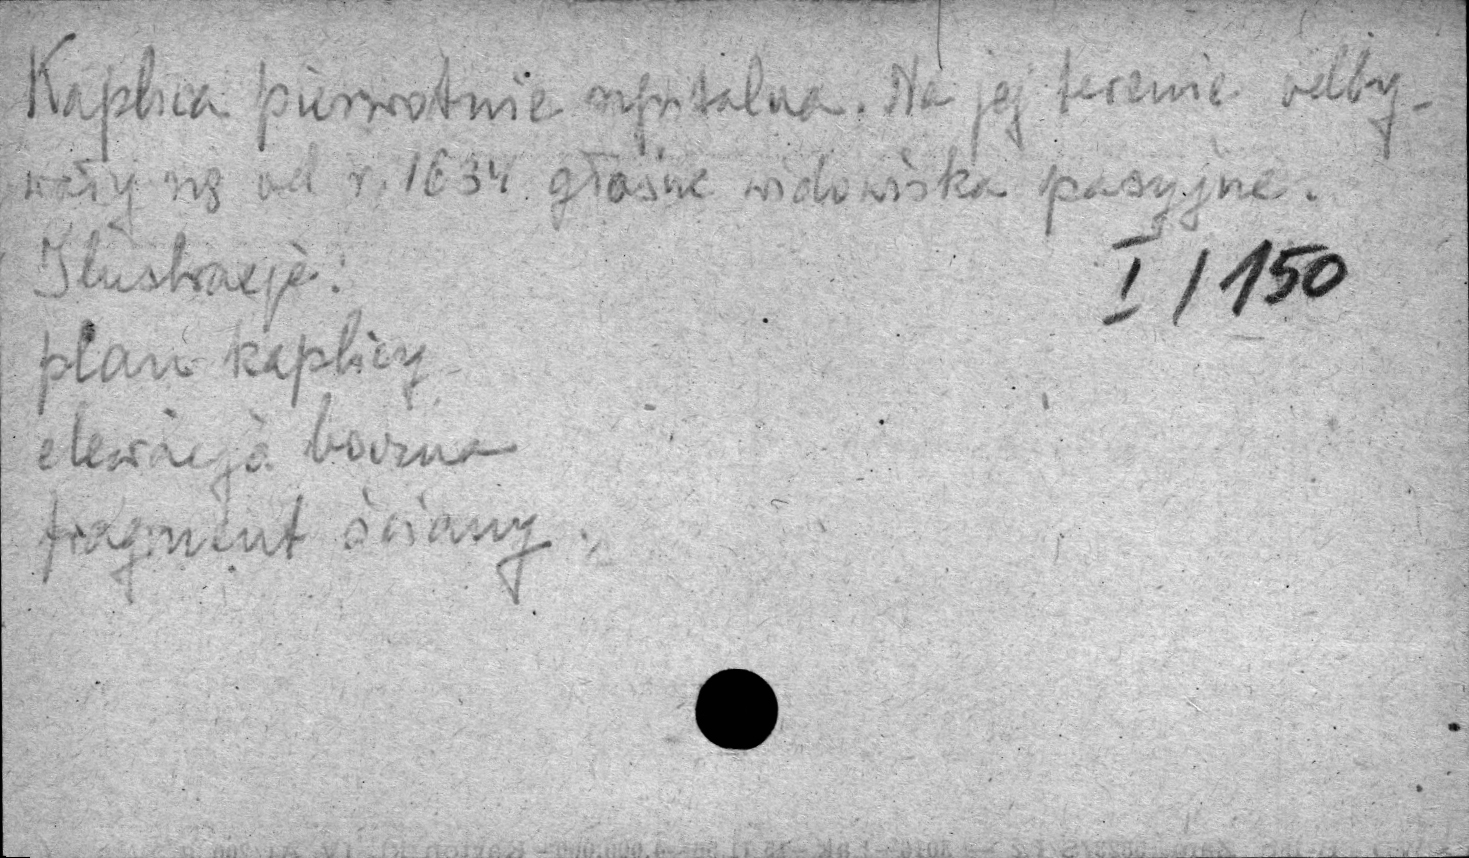 Kaplica pierwotnie szpitalna. Na jej terenie odby-
wały się od r. 1634 głośne widowiska pasyjne.
Ilustracje:
I / 150
plan kaplicy
elewacja boczna
fragment ściany.